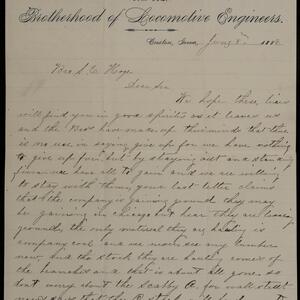 Brotherhood of Locomotive Engineers.
Creston, Iowa, Aug 8th 1888
Bro S. E. Hoge
Dear Sir
We hope these lines
will find you in good spirits as it leaves us
and the Bros have made up their minds that there
is no use in saying give up for we have nothing
to give up for but by staying out and standing
firm we have all to gain and we are willing
to stay with them, your last letter claims
that the company is gaining ground they may
be gaining in Chicago but hear they are losing
ground, the only material they are hauling is
company coal and we more see any lumber
now, and the stock they are hauling comes of
the branches and that is about all gone. so
don't worry about the Scabby Q. for wall street